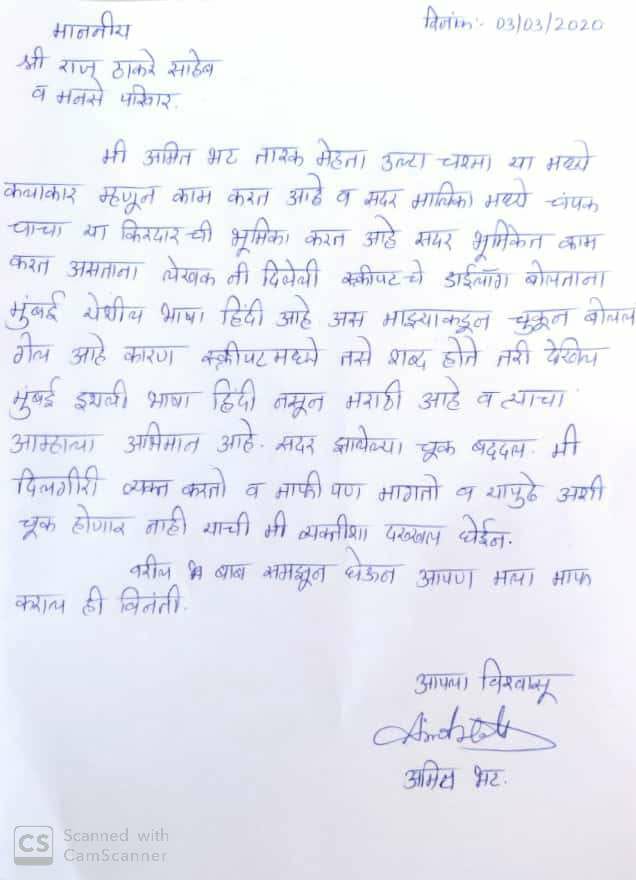 माननीय
दिनांक:- 03/03/2020
श्री राज ठाकरे साहेब
व मनसे परिवार.
मी अमित भट तारक मेहता उल्टा चश्मा या मध्ये
कलाकार म्हणून काम करत आहे व सदर मालिका मध्ये चंपक
चाचा या किरदार ची भूमिका करत आहे सदर भूमिकेत काम
करत असताना लेखक नी दिलेली स्क्रीपटचे डाईलॉग बोलताना
मुंबई येथील भाषा हिंदी आहे अस माझ्याकडून चुकून बोलल
गेल आहे कारण स्क्रीपटमध्ये तसे शब्द होते तरी देखिल
मुंबई इथली भाषा हिंदी नसून मराठी आहे व त्याचा
आम्हाला अभिमान आहे. सदर झालेल्या चूक बददल. मी
दिलगीरी व्यक्त करतो व माफी पण मागतो व यापुढे अशी
चूक होणार नाही याची मी व्यक्तीशा दख्खल घेईन.
वरील बाब समझून घेऊन आपण मला माफ
कराल ही विनंती.
आपला विश्वासू
अमित भट.
CS Scanned with
CamScanner